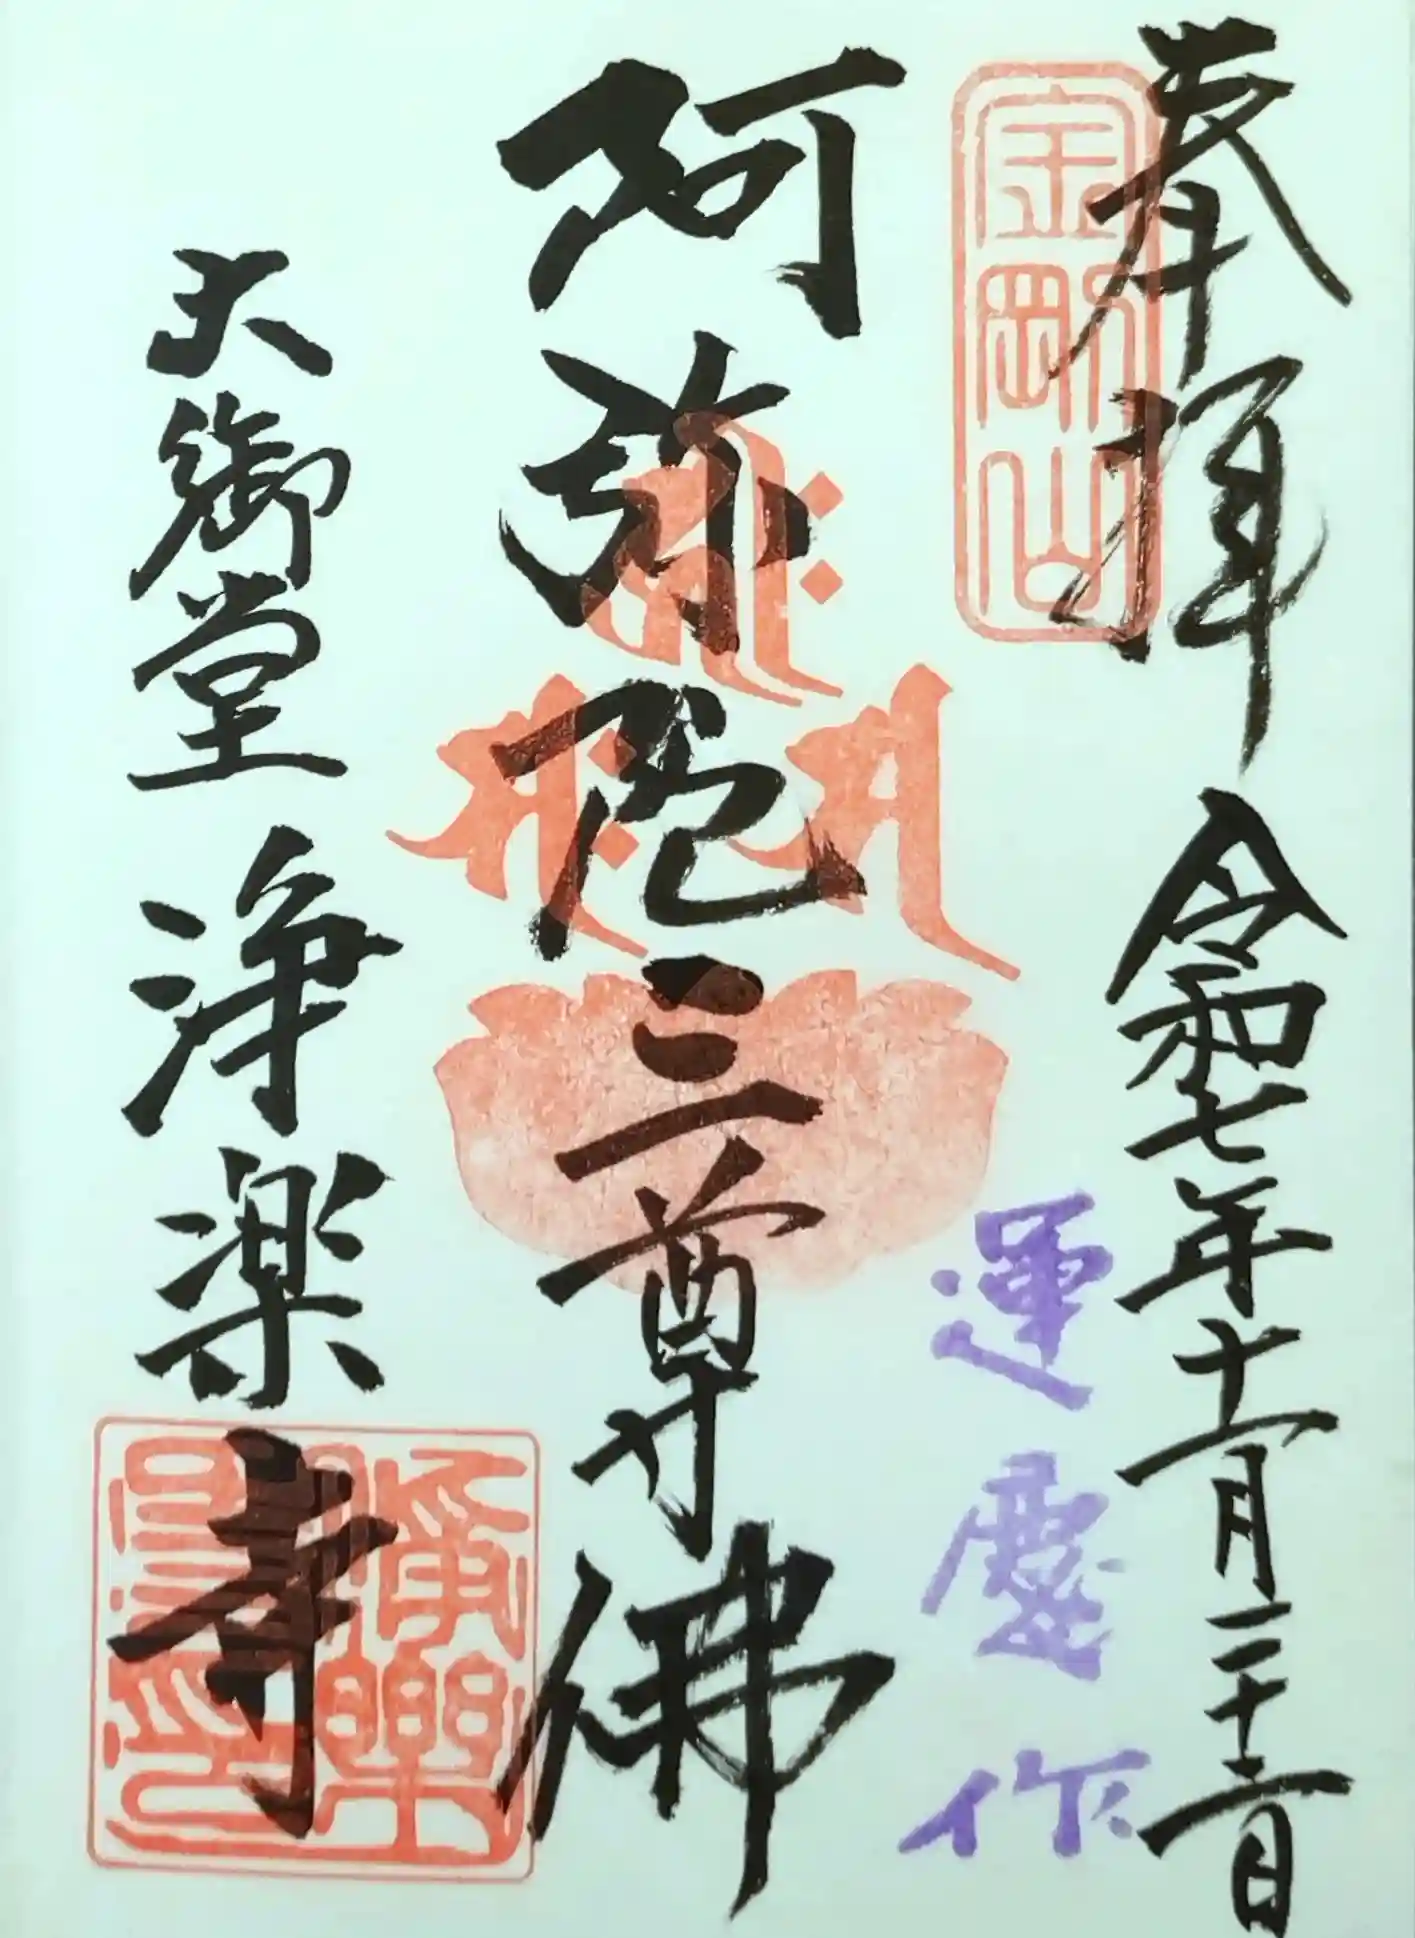 奉拝 令和七年十一月二十二日
金剛山
運慶作
阿弥陀三尊佛
大御堂 浄楽寺